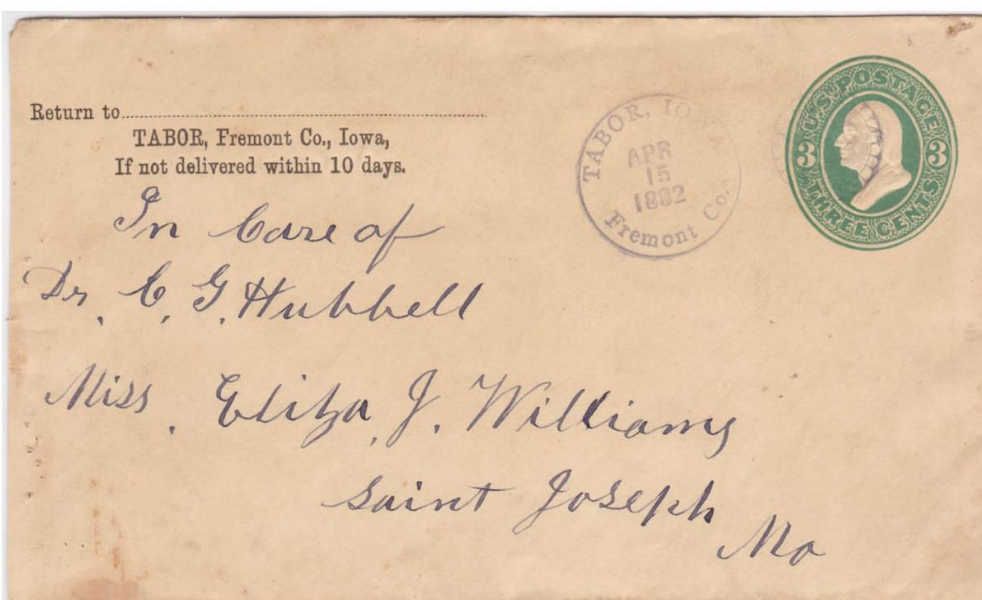 Return to
TABOR, Fremont Co., Iowa,
If not delivered within 10 days.
TABOR, IOWA
APR
15
1882
Fremont Co.
U.S. POSTAGE
3 3
THREE CENTS
In Care of
Dr. C. G. Hubbell
Miss. Eliza, J. Williams
Saint Joseph
Mo